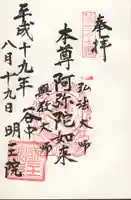 奉拝
弘法大師
本尊阿弥陀如来
興教大師
平成十九年 谷中
八月十九日 明王院